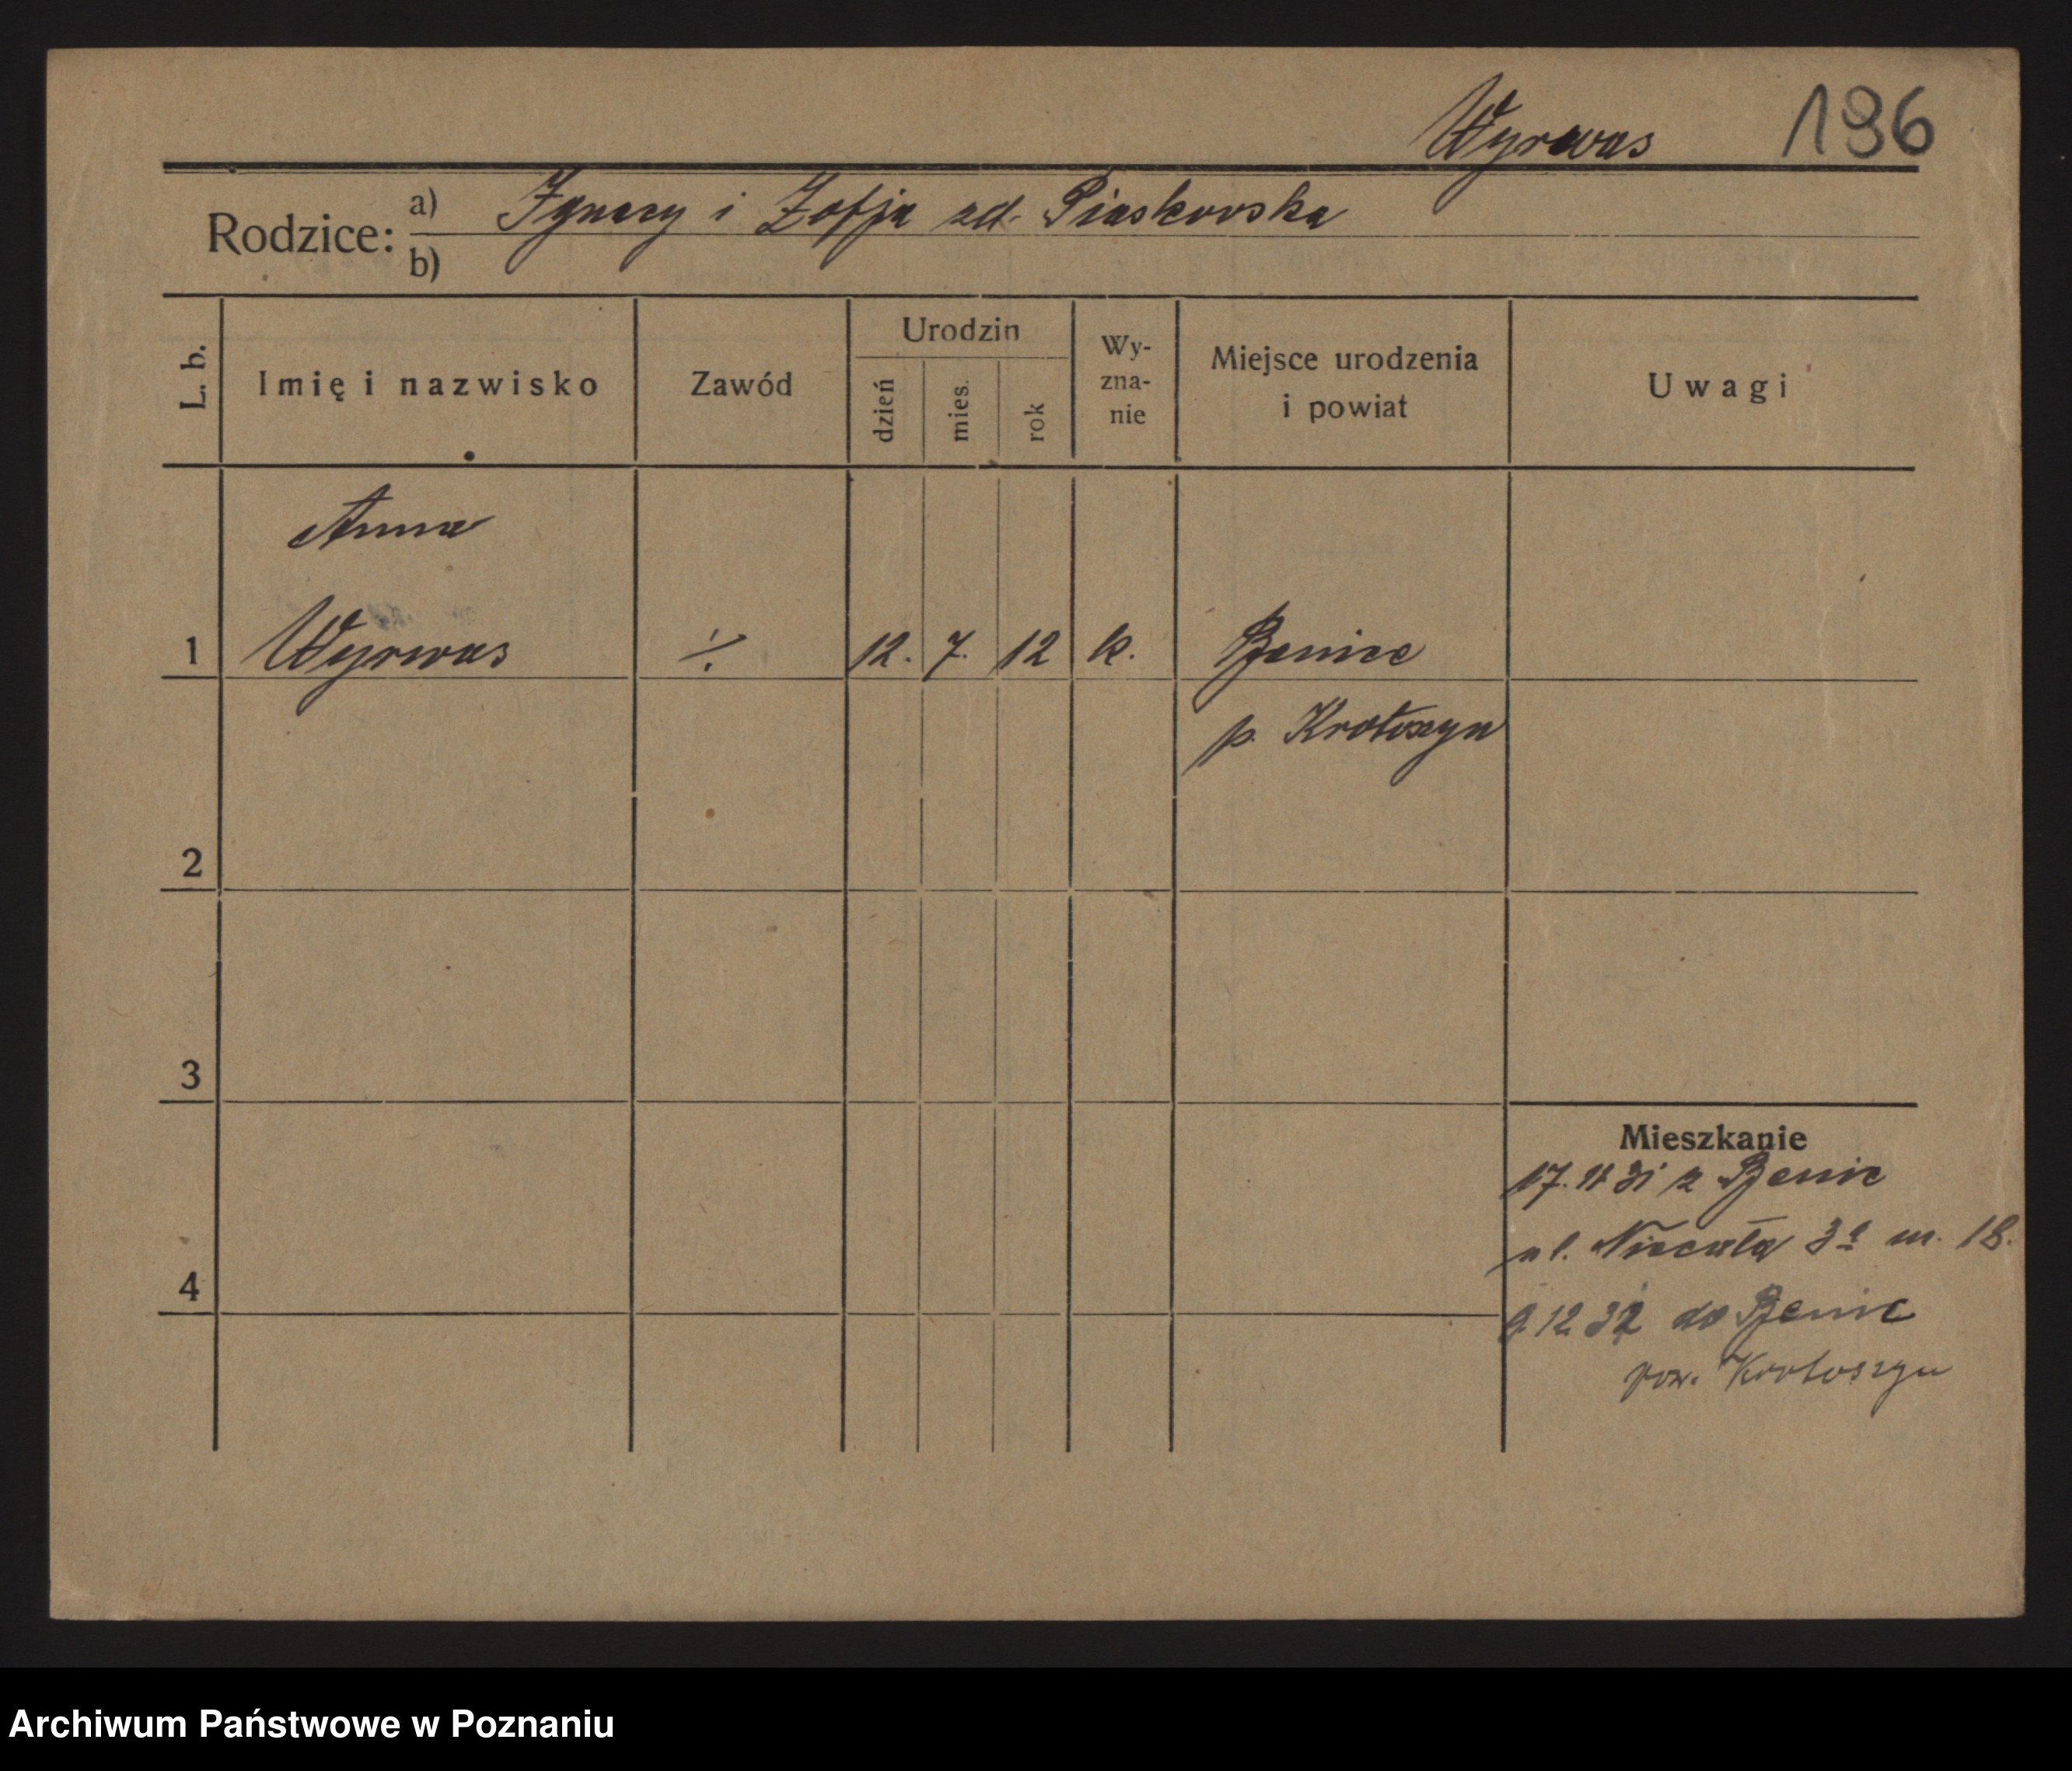 Wyrwas 196
Rodzice: a) Ignacy i Zofja zd. Piaskowska
b)
L. b. Imię i nazwisko Zawód Urodzin dzień mies. rok Wyznanie Miejsce urodzenia i powiat Uwagi
Anna
1 Wyrwas ·/. 12. 7. 12 k. Benice
p. Krotoszyn
2
3
Mieszkanie
17. 11 31 z Benic
ul. Niecała 3a m. 18.
4
9. 12 32 do Benic
pow. Krotoszyn
Archiwum Państwowe w Poznaniu